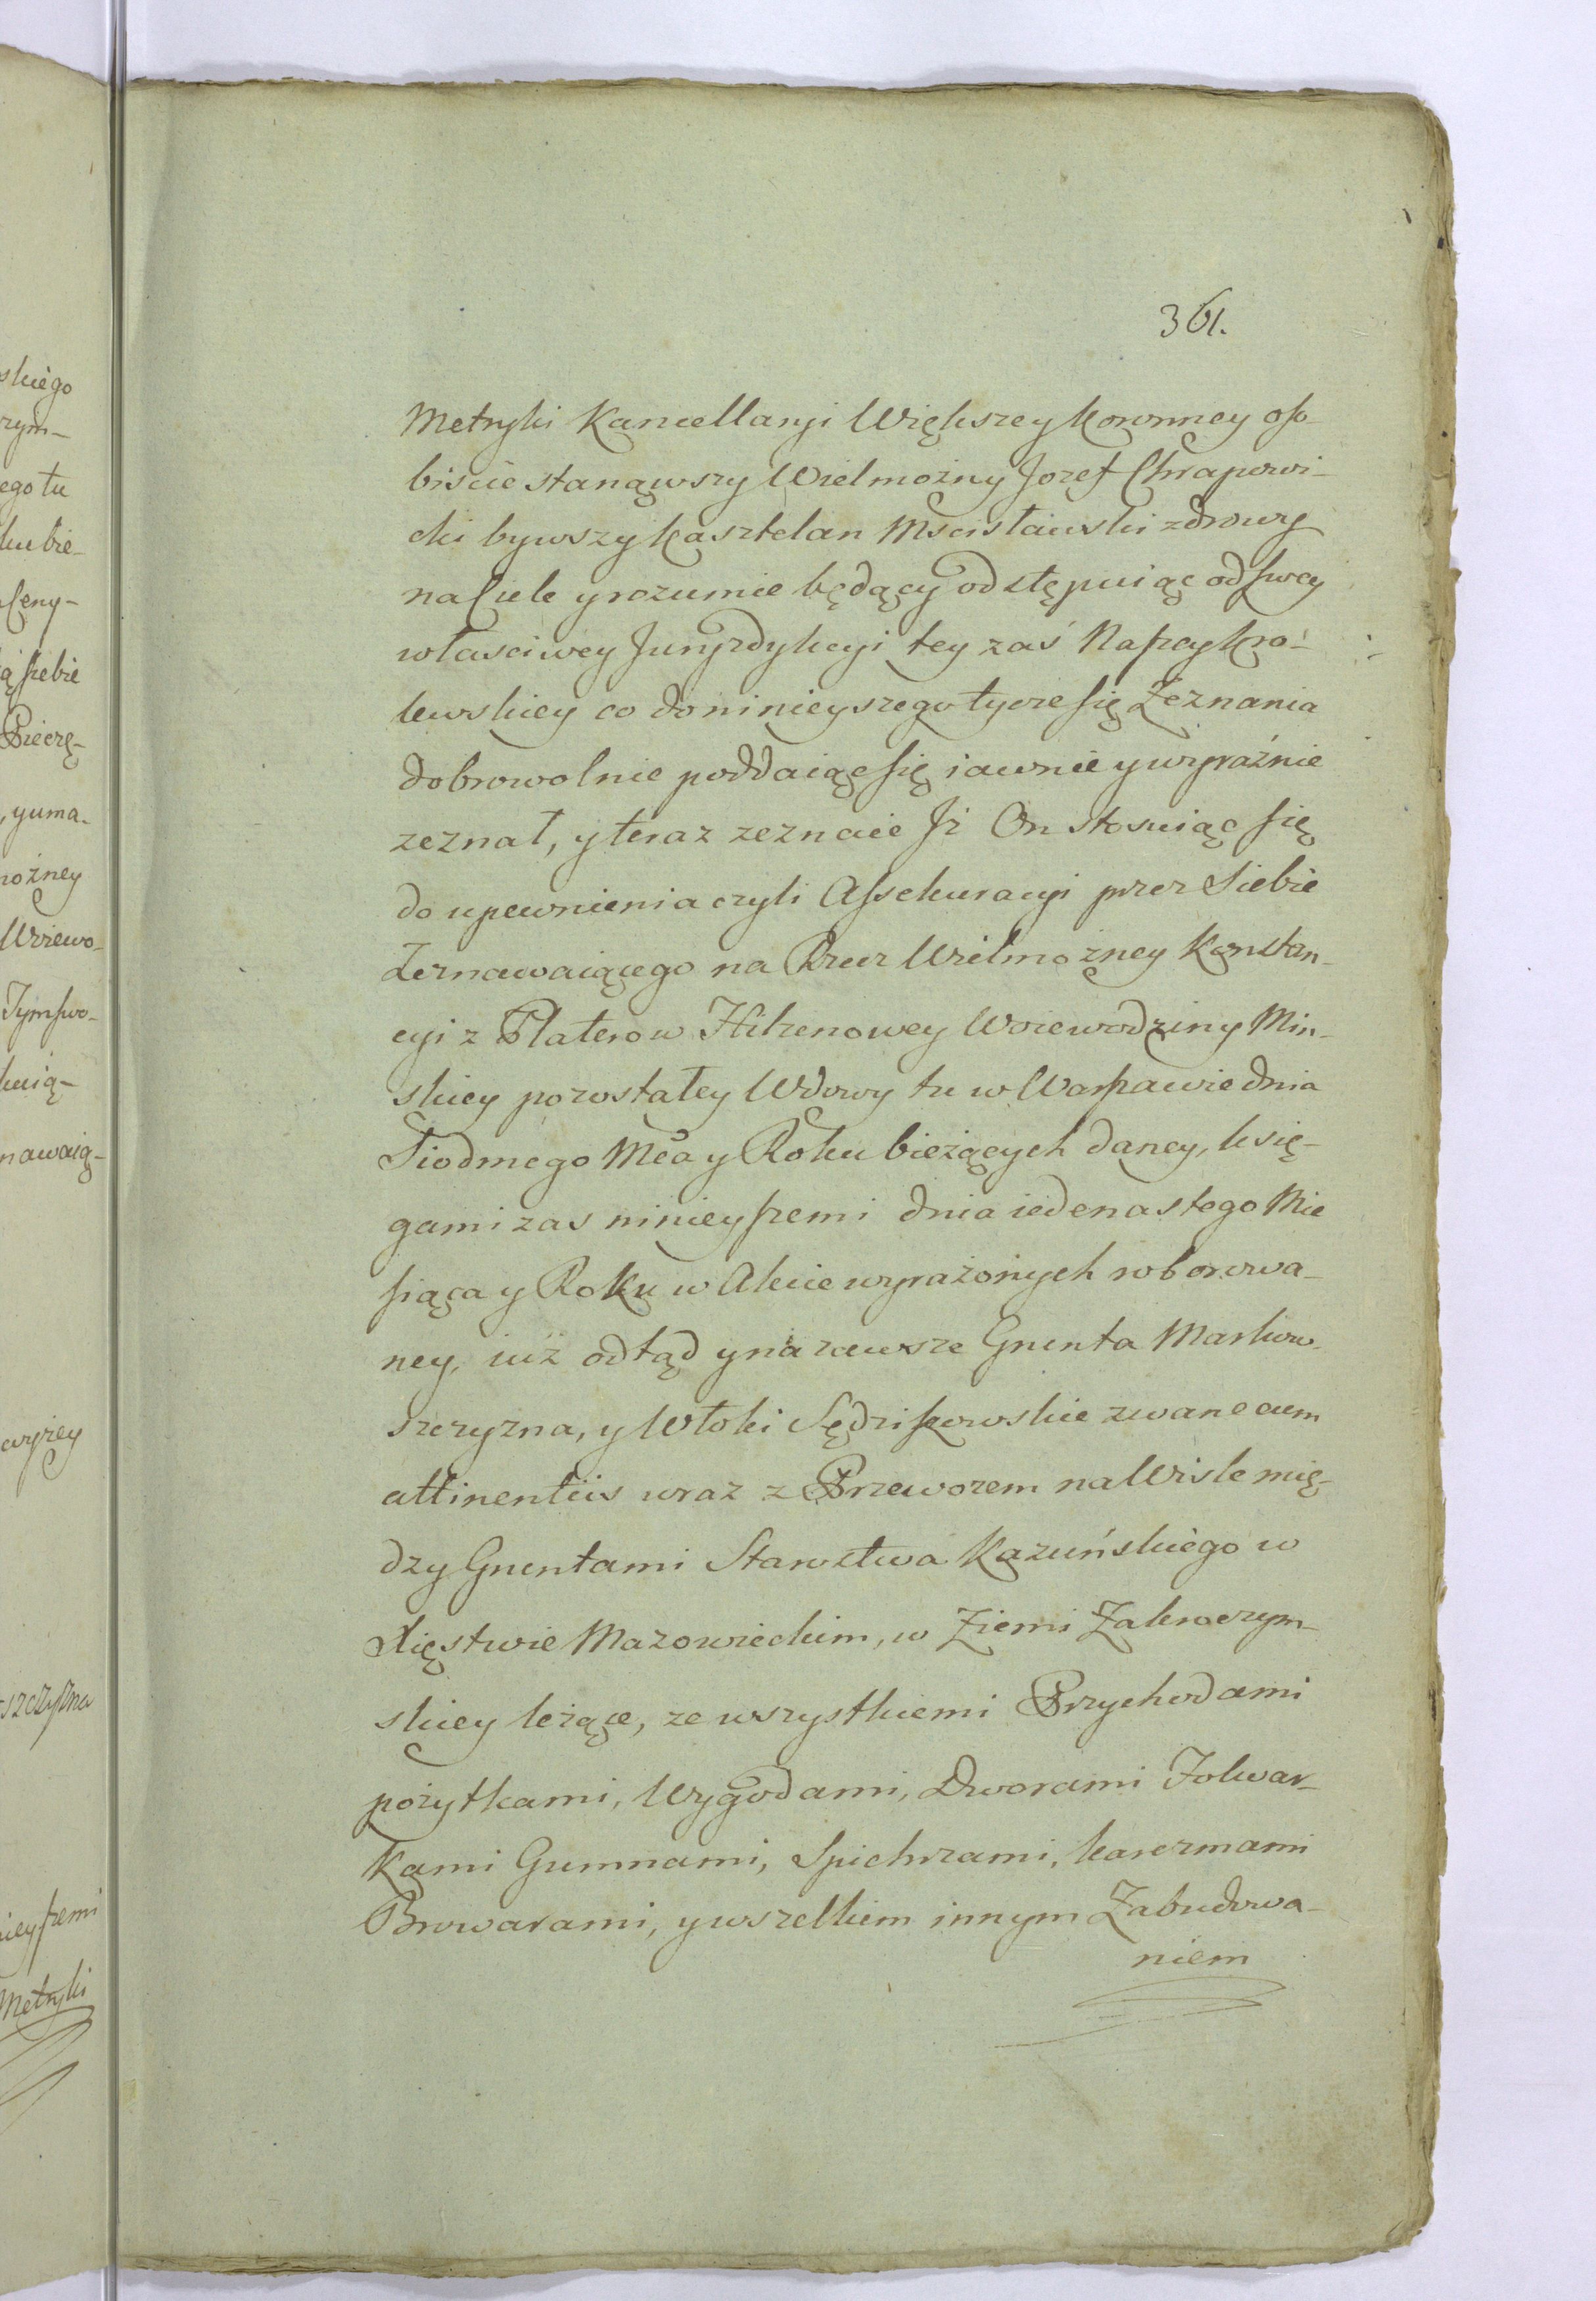 skiego
rym-
ego tu
ku bie-
Ceny-
ą siebie
Pieczę-
, y uma-
możney
Woiewo-
Tym swo-
kuią-
nawaią-
wyżey
szczyzna
nieyszemi
Metryki
361.
Metryki Kancellaryi Większey koronney oso
biscie stanąwszy Wielmożny Jozef Chrapowi-
cki bywszy kasztelan Mscisławski zdrowy
na Ciele y rozumie będący odstępuiąc od swey
własciwey Juryzdykcyi tey zaś Naszey kró-
lewskiey co do ninieyszego tycze się Zeznania
dobrowolnie poddaiąc się iawnie y wyraźnie
zeznał, y teraz zeznaie Jż On stosuiąc się
do upewnienia czyli Assekuracyi przez Siebie
Zeznawaiącego na Rzecz Wielmożney Konstan-
cyi z Platerow Hilzenowey Woiewodziny Min-
skiey pozostałey Wdowy tu w Warszawie dnia
Siodmego Mca y Roku bieżących daney, księ-
gami zas ninieyszemi dnia iedenastego Mie
siąca y Roku w Akcie wyrażonych roborowa-
ney, iuż odtąd y na zawsze Grunta Markow-
szczyzna, y Włoki Sędziszowskie zwane cum
attinentiis wraz z Przewozem na Wisle mię-
dzy Gruntami Starostwa Kazuńskiego w
Xięstwie Mazowieckim, w Ziemi Zakroczym-
skiey leżące, ze wszystkiemi Przychodami
pożytkami, Wygodami, Dworami Folwar-
kami Gumnami, Spichrzami, karczmami
Browarami, y wszelkiem innym Zabudowa-
niem